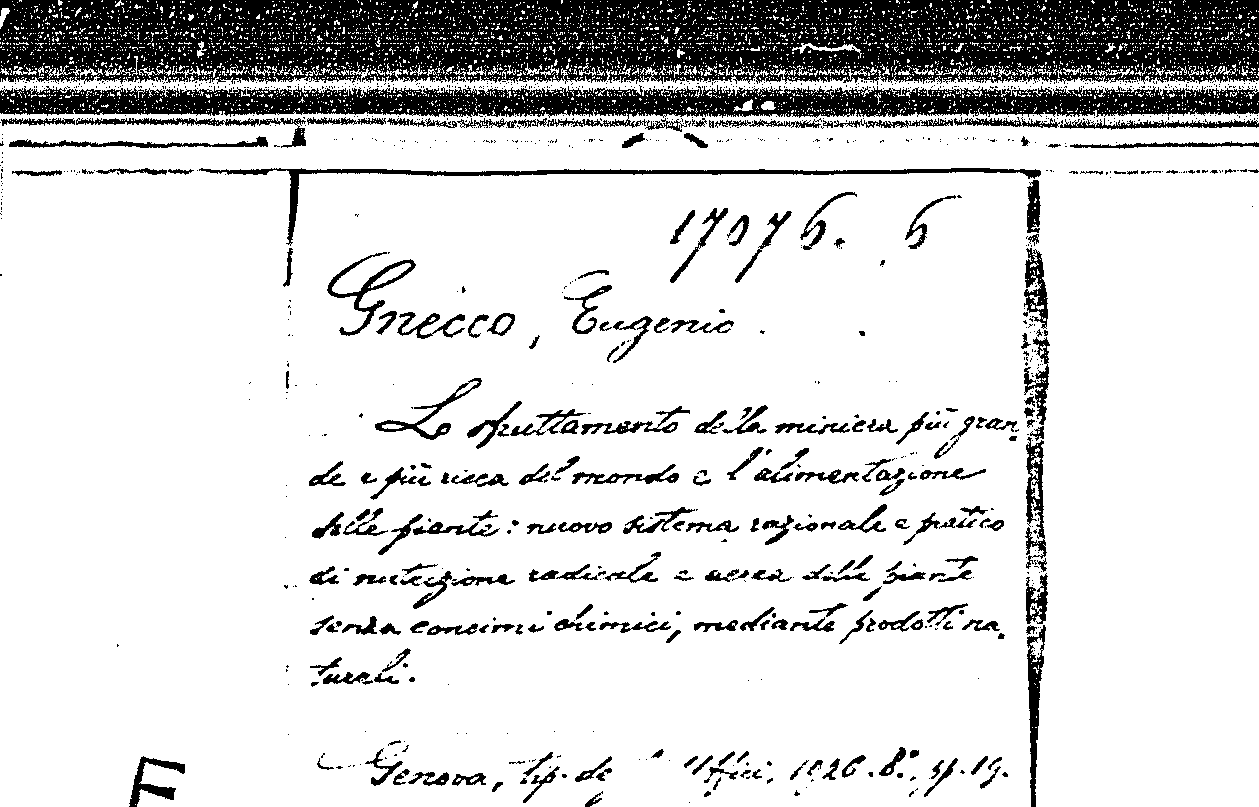 17076. 6
Gnecco, Eugenio.
Lo sfruttamento della miniera più gran-
de e più ricca del mondo e l'alimentazione
delle piante: nuovo sistema razionale e pratico
di nutrizione radicale e aerea delle piante
senza concimi chimici, mediante prodotti na-
turali.
Genova, tip. Uffici, 1926. 8.°, pp. 19.
F